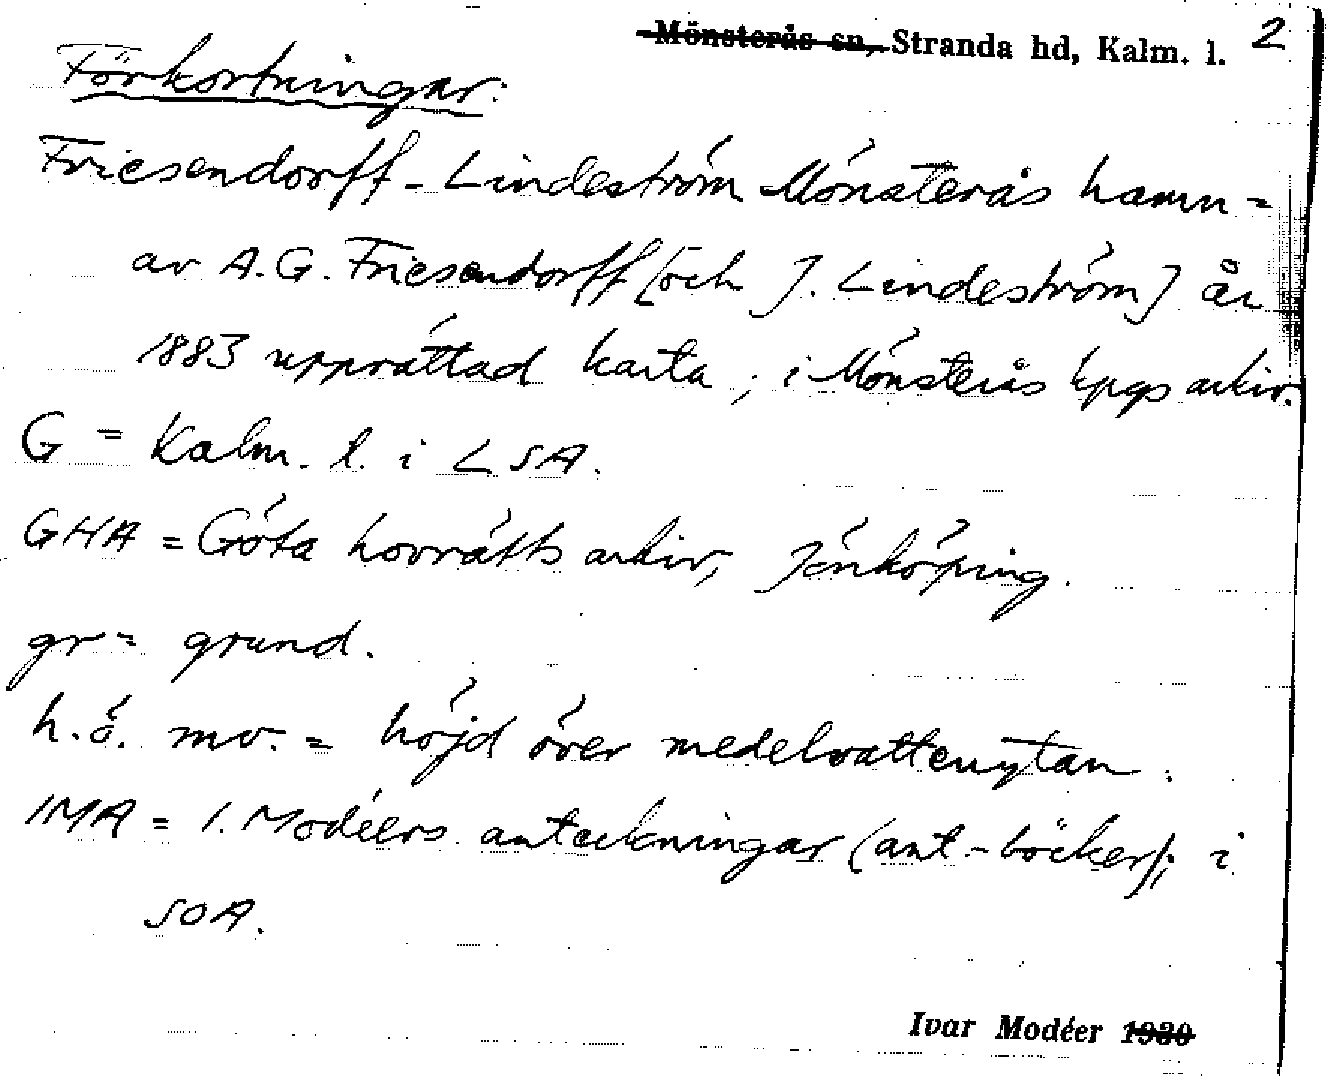 Mönsterås sn, Stranda hd, Kalm. l. 2
Förkortningar:
Friesendorff - Lindeström Mönsterås hamn =
av A.G. Friesendorff [och J. Lindeström] år
1883 upprättad karta; i Mönsterås kpgs arkiv.
G = Kalm. l. i LSA.
GHA = Göta hovrätts arkiv, Jönköping.
gr = grund.
h.ö. mv. = höjd över medelvattenytan.
IMA = I. Modéers anteckningar (ant.-böcker); i
SOA.
Ivar Modéer 1930